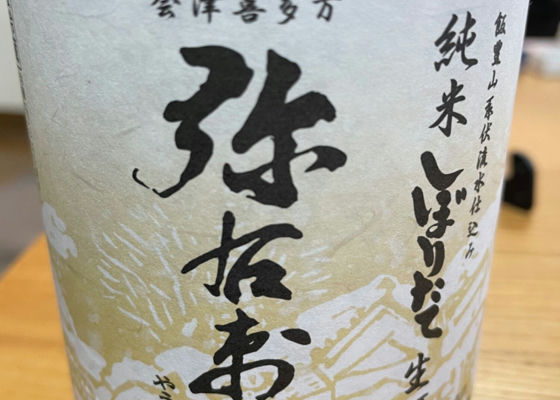 会津喜多方
弥右衛
やう
飯豊山系伏流水仕込み
純米
しぼりたて
生